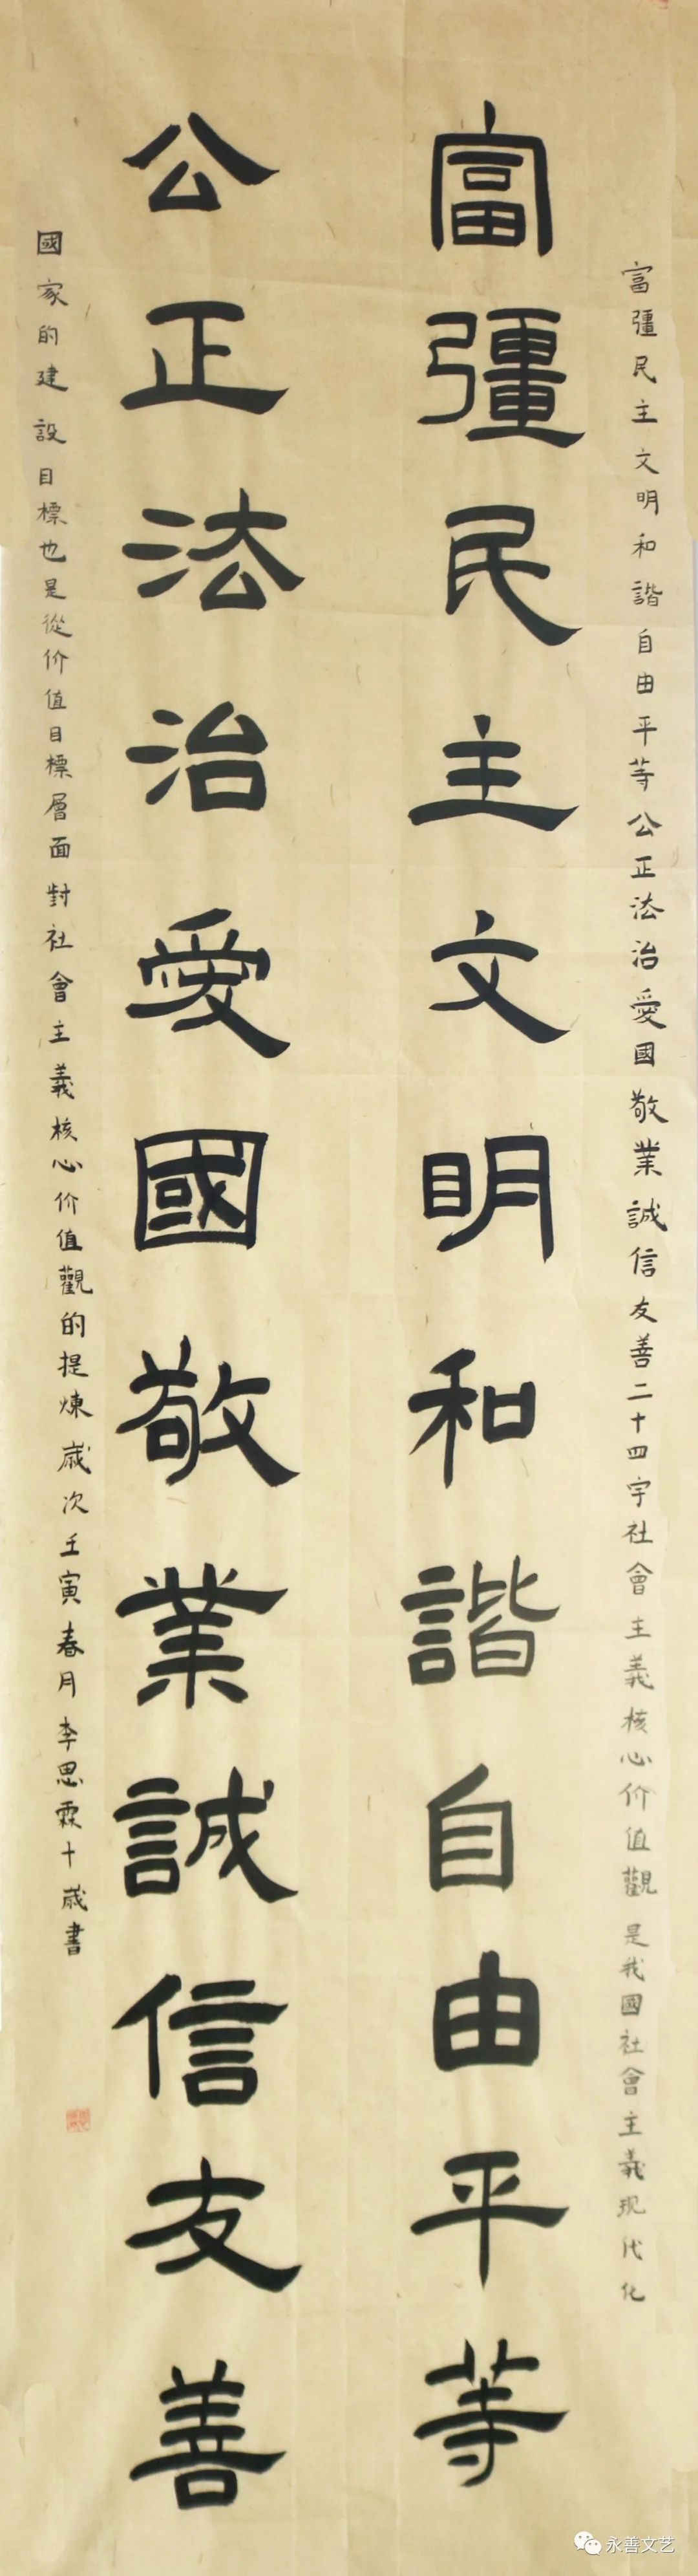 富彊民主文明和諧自由平等公正法治愛國敬業誠信友善二十四字社會主義核心价值觀是我國社會主義现代化
富彊民主文明和諧自由平等
公正法治愛國敬業誠信友善
國家的建設目標也是從价值目標層面對社會主義核心价值觀的提煉歲次壬寅春月李思霖十歲書
永善文艺